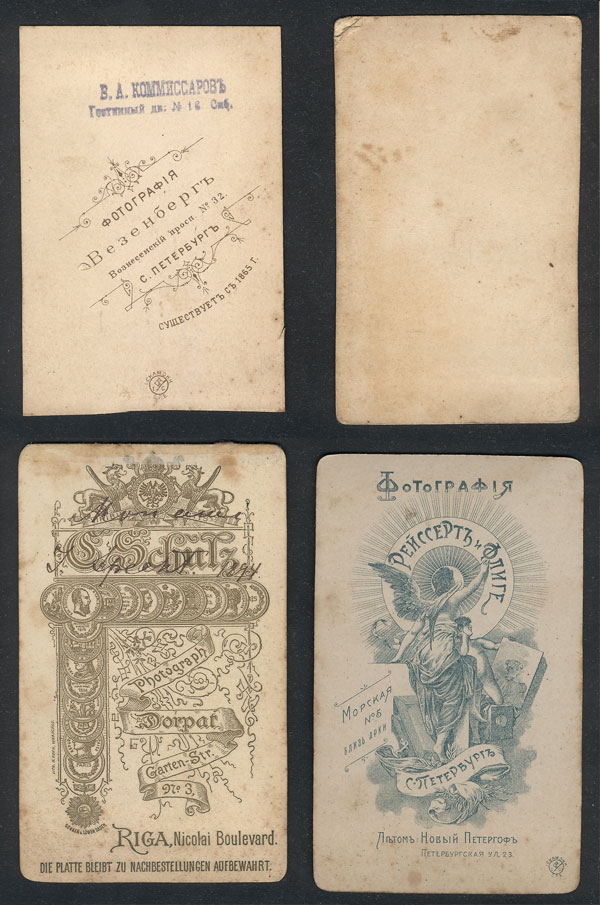 В. А. КОММИССАРОВЪ
Гостинный дв: № 16 Спб,
ФОТОГРАФІЯ
Везенбергъ
Вознесенскій просп. № 32.
С. ПЕТЕРБУРГЪ
СУЩЕСТВУЕТЪ СЪ 1865 Г.
C. Schulz
1894
Photograph
Dorpat.
Garten-Str.
No 3.
RIGA, Nicolai Boulevard.
DIE PLATTE BLEIBT ZU NACHBESTELLUNGEN AUFBEWAHRT.
ФОТОГРАФІЯ
РЕЙССЕРТЪ и ФЛИГЕ
МОРСКАЯ
№ 5
БЛИЗЬ АРКИ
С. ПЕТЕРБУРГЪ
Лѣтомъ: Новый Петергофъ
Петербургская ул. 23.